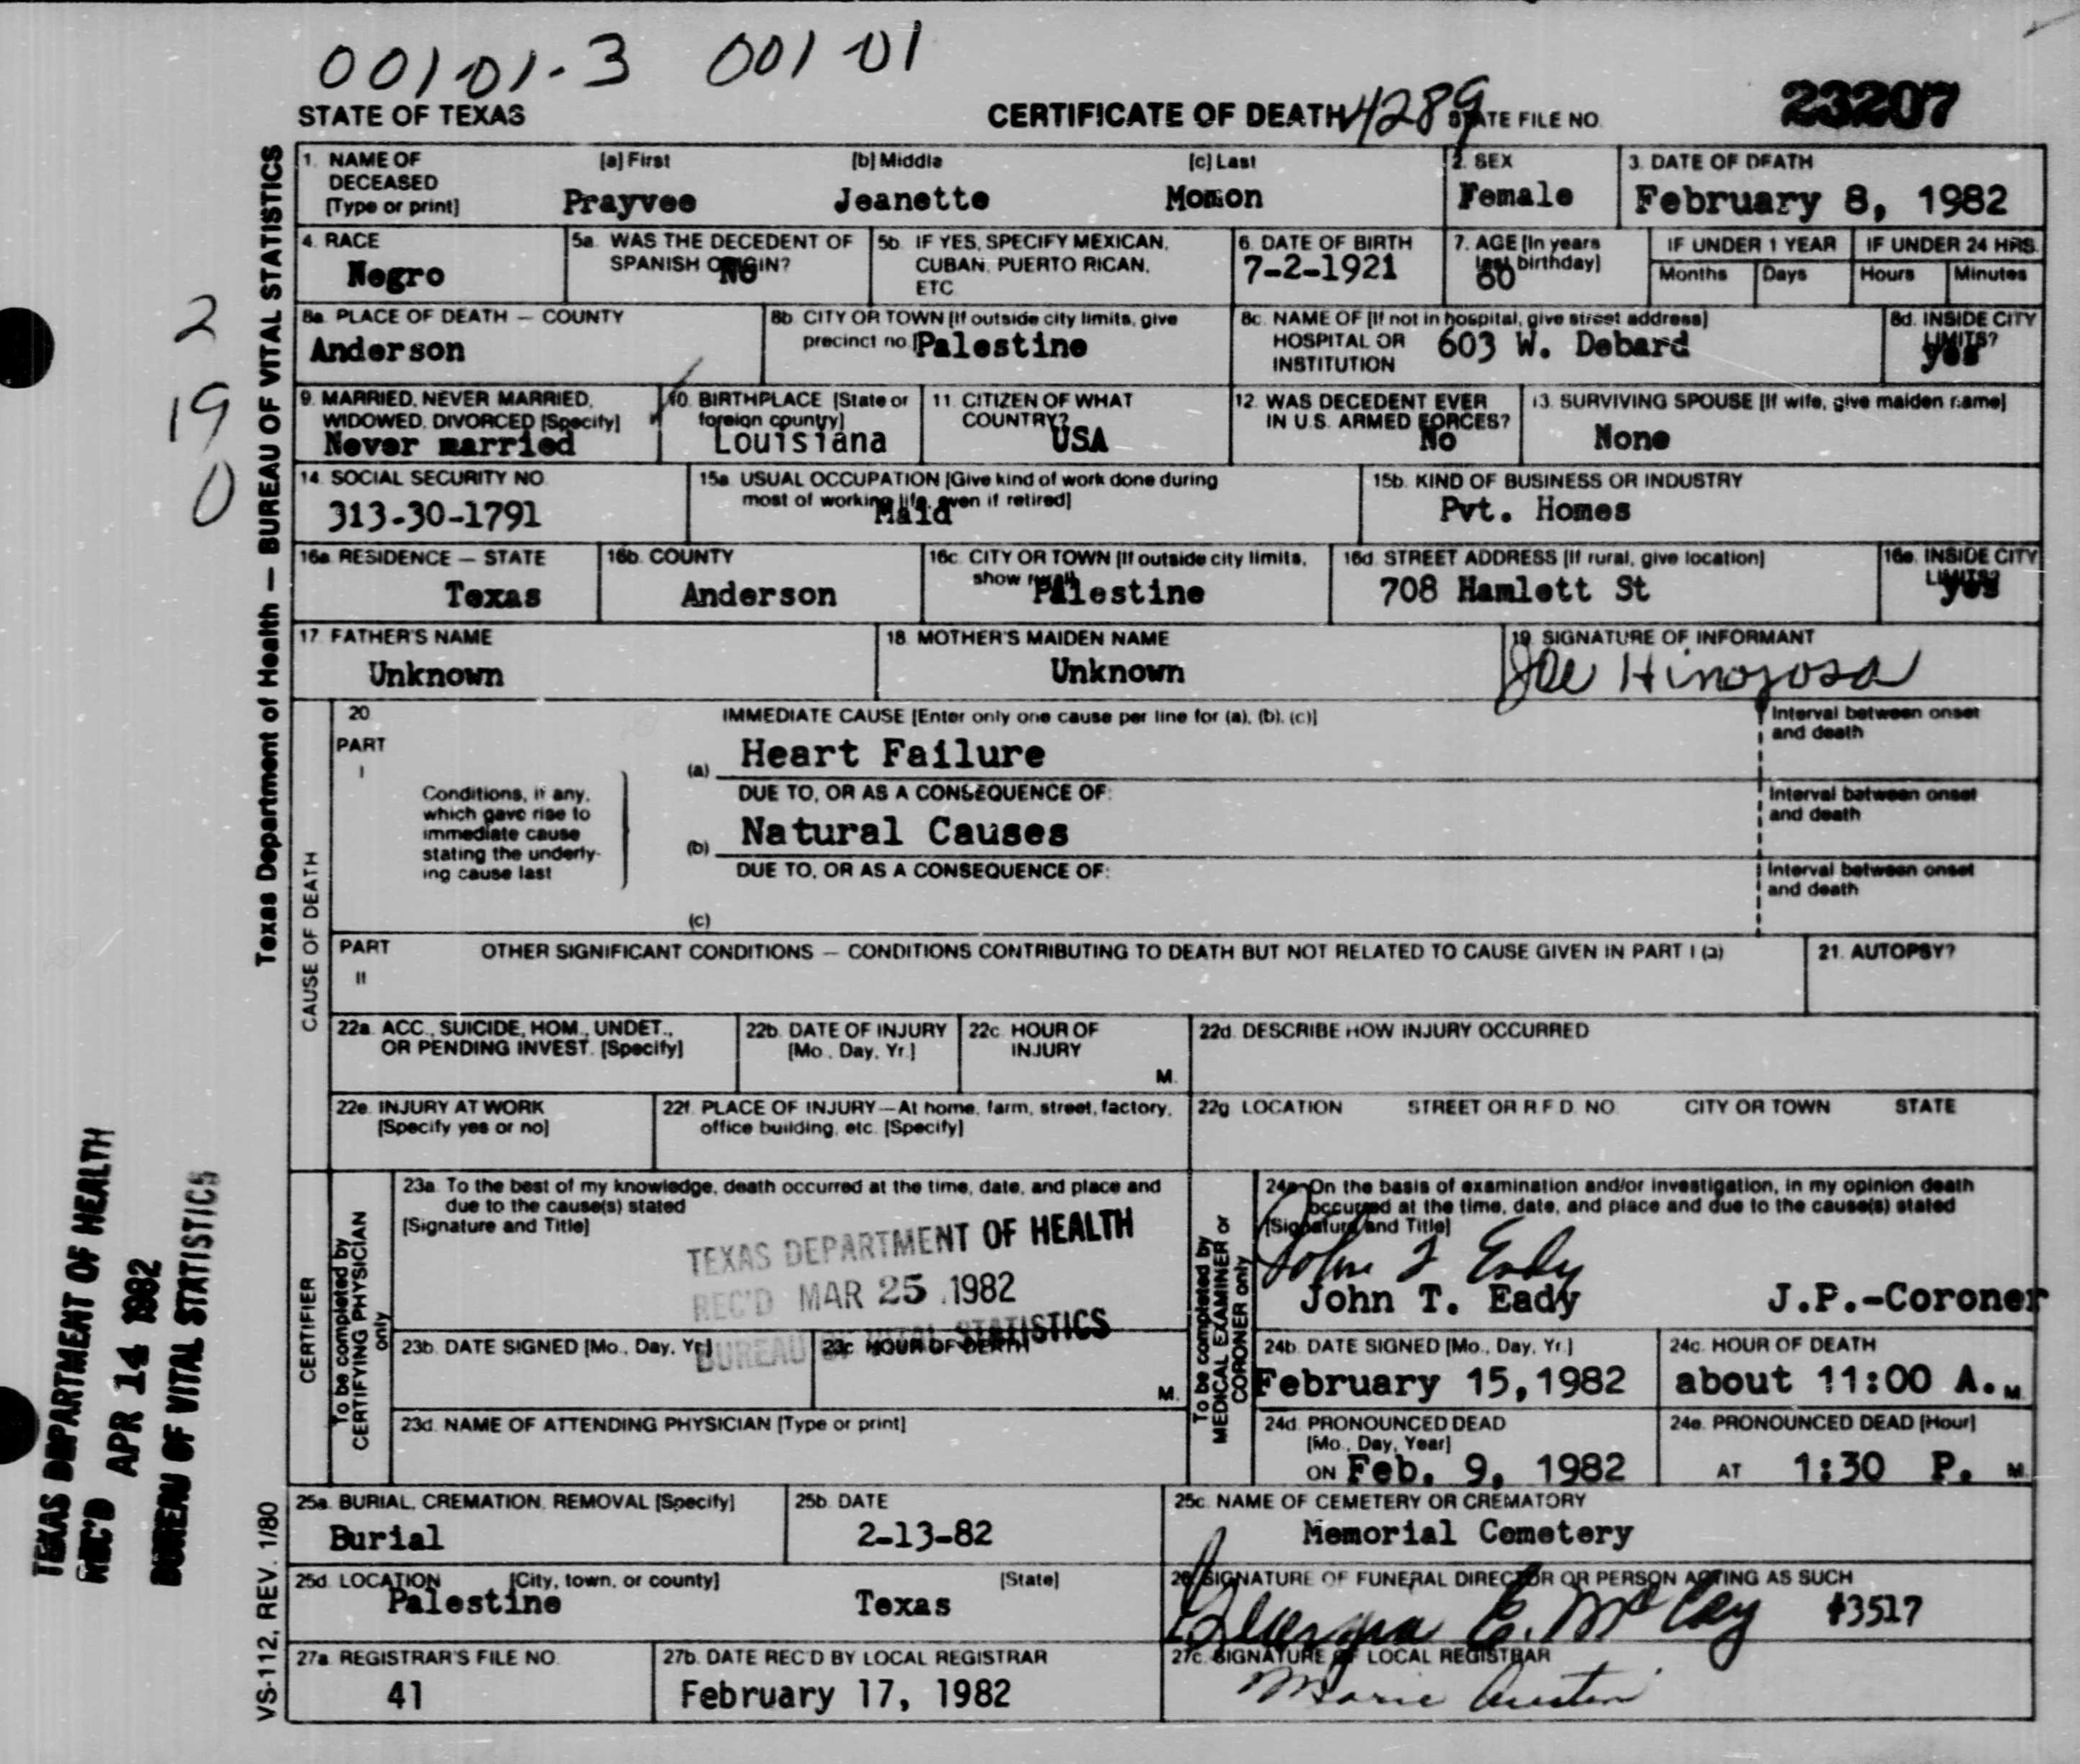 00101-3 001 01
STATE OF TEXAS CERTIFICATE OF DEATH 4289 STATE FILE NO. 23207
Texas Department of Health — BUREAU OF VITAL STATISTICS
2
19
0
1. NAME OF DECEASED [Type or print] [a] First [b] Middle [c] Last
Prayvee Jeanette Momon
2. SEX
Female
3. DATE OF DEATH
February 8, 1982
4. RACE
Negro
5a. WAS THE DECEDENT OF SPANISH ORIGIN?
No
5b. IF YES, SPECIFY MEXICAN, CUBAN, PUERTO RICAN, ETC
6. DATE OF BIRTH
7-2-1921
7. AGE [In years last birthday]
60
IF UNDER 1 YEAR
Months Days
IF UNDER 24 HRS.
Hours Minutes
8a. PLACE OF DEATH — COUNTY
Anderson
8b. CITY OR TOWN [If outside city limits, give precinct no.]
Palestine
8c. NAME OF [If not in hospital, give street address] HOSPITAL OR INSTITUTION
603 W. Debard
8d. INSIDE CITY LIMITS?
yes
9. MARRIED, NEVER MARRIED, WIDOWED, DIVORCED [Specify]
Never married
10. BIRTHPLACE [State or foreign country]
Louisiana
11. CITIZEN OF WHAT COUNTRY?
USA
12. WAS DECEDENT EVER IN U.S. ARMED FORCES?
No
13. SURVIVING SPOUSE [If wife, give maiden name]
None
14. SOCIAL SECURITY NO.
313-30-1791
15a. USUAL OCCUPATION [Give kind of work done during most of working life, even if retired]
Maid
15b. KIND OF BUSINESS OR INDUSTRY
Pvt. Homes
16a. RESIDENCE — STATE
Texas
16b. COUNTY
Anderson
16c. CITY OR TOWN [If outside city limits, show rural]
Palestine
16d. STREET ADDRESS [If rural, give location]
708 Hamlett St
16e. INSIDE CITY LIMITS?
yes
17. FATHER'S NAME
Unknown
18. MOTHER'S MAIDEN NAME
Unknown
19. SIGNATURE OF INFORMANT
Joe Hinojosa
CAUSE OF DEATH
20. PART I
IMMEDIATE CAUSE [Enter only one cause per line for (a), (b), (c)]
Conditions, if any, which gave rise to immediate cause stating the underlying cause last
(a) Heart Failure
Interval between onset and death
DUE TO, OR AS A CONSEQUENCE OF:
(b) Natural Causes
Interval between onset and death
DUE TO, OR AS A CONSEQUENCE OF:
(c)
Interval between onset and death
PART II OTHER SIGNIFICANT CONDITIONS — CONDITIONS CONTRIBUTING TO DEATH BUT NOT RELATED TO CAUSE GIVEN IN PART I (a)
21. AUTOPSY?
22a. ACC., SUICIDE, HOM., UNDET., OR PENDING INVEST. [Specify]
22b. DATE OF INJURY [Mo., Day, Yr.]
22c. HOUR OF INJURY M.
22d. DESCRIBE HOW INJURY OCCURRED
22e. INJURY AT WORK [Specify yes or no]
22f. PLACE OF INJURY—At home, farm, street, factory, office building, etc. [Specify]
22g. LOCATION STREET OR R.F.D. NO. CITY OR TOWN STATE
CERTIFIER
To be completed by CERTIFYING PHYSICIAN only
23a. To the best of my knowledge, death occurred at the time, date, and place and due to the cause(s) stated
[Signature and Title]
TEXAS DEPARTMENT OF HEALTH
REC'D MAR 25 1982
BUREAU OF VITAL STATISTICS
23b. DATE SIGNED [Mo., Day, Yr.]
23c. HOUR OF DEATH M.
23d. NAME OF ATTENDING PHYSICIAN [Type or print]
To be completed by MEDICAL EXAMINER or CORONER only
24a. On the basis of examination and/or investigation, in my opinion death occurred at the time, date, and place and due to the cause(s) stated
[Signature and Title]
John T Eady
John T. Eady J.P.-Coroner
24b. DATE SIGNED [Mo., Day, Yr.]
February 15, 1982
24c. HOUR OF DEATH
about 11:00 A. M.
24d. PRONOUNCED DEAD [Mo., Day, Year]
ON Feb. 9, 1982
24e. PRONOUNCED DEAD [Hour]
AT 1:30 P. M.
25a. BURIAL, CREMATION, REMOVAL [Specify]
Burial
25b. DATE
2-13-82
25c. NAME OF CEMETERY OR CREMATORY
Memorial Cemetery
25d. LOCATION [City, town, or county] [State]
Palestine Texas
26. SIGNATURE OF FUNERAL DIRECTOR OR PERSON ACTING AS SUCH
E. McCoy #3517
27a. REGISTRAR'S FILE NO.
41
27b. DATE REC'D BY LOCAL REGISTRAR
February 17, 1982
27c. SIGNATURE OF LOCAL REGISTRAR
Marie Austin
VS-112, REV. 1/80
TEXAS DEPARTMENT OF HEALTH
REC'D APR 14 1982
BUREAU OF VITAL STATISTICS